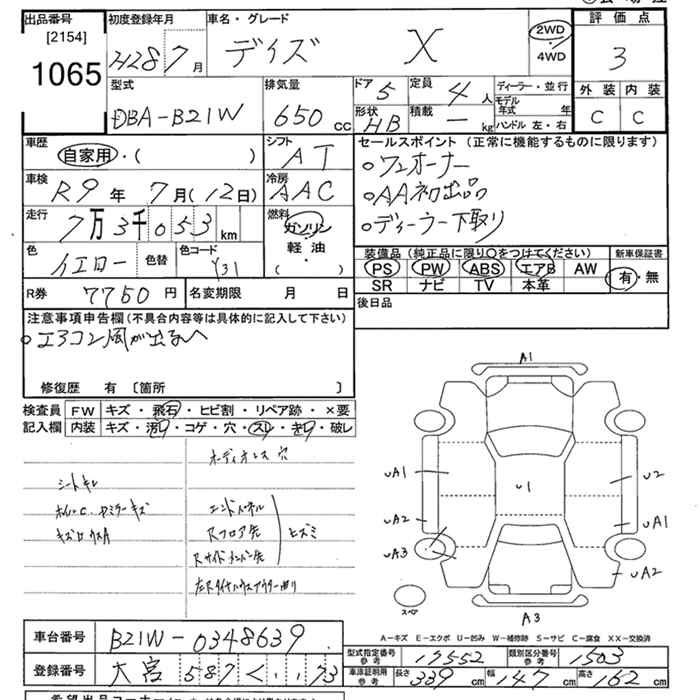 出品番号
[2154]
1065
初度登録年月
H28 7月
車名・グレード
デイズ X
2WD
・
4WD
評価点
3
外装 内装
C C
型式
DBA-B21W
排気量
650 cc
ドア 5
定員 4人
形状 HB
積載 - kg
ディーラー・並行
モデル年式 年
ハンドル 左・右
車歴
自家用・( )
シフト
AT
セールスポイント (正常に機能するものに限ります)
○ワンオーナー
○AA初出品
○ディーラー下取り
車検
R9年 7月(12日)
冷房
AAC
走行
7万3千053 km
燃料
ガソリン
軽油
( )
色
イエロー
色替
色コード
Y31
装備品 (純正品に限り○をつけてください)
PS PW ABS エアB AW
SR ナビ TV 本革
新車保証書
有・無
R券 7750円
名変期限 月 日
後日品
注意事項申告欄 (不具合内容等は具体的に記入して下さい)
○エアコン風が出るへ
修復歴 有 〔箇所 〕
検査員 FW キズ・飛石・ヒビ割・リペア跡・×要
記入欄 内装 キズ・汚れ・コゲ・穴・スレ・キレ・破レ
オーディオレス 穴
シートキレ
エンドパネル
Rフロア先
ヒズミ
A1
UA1
UA2
UA3
U1
U2
UA1
UA2
A3
スペア
A-キズ E-エクボ U-凹み W-補修跡 S-サビ C-腐食 XX-交換済
車台番号 B21W-0348639
登録番号 大宮 587 く ・・73
型式指定番号 参考 17552
類別区分番号 参考 1503
車庫証明用 参考 長さ 339 cm 幅 147 cm 高さ 162 cm